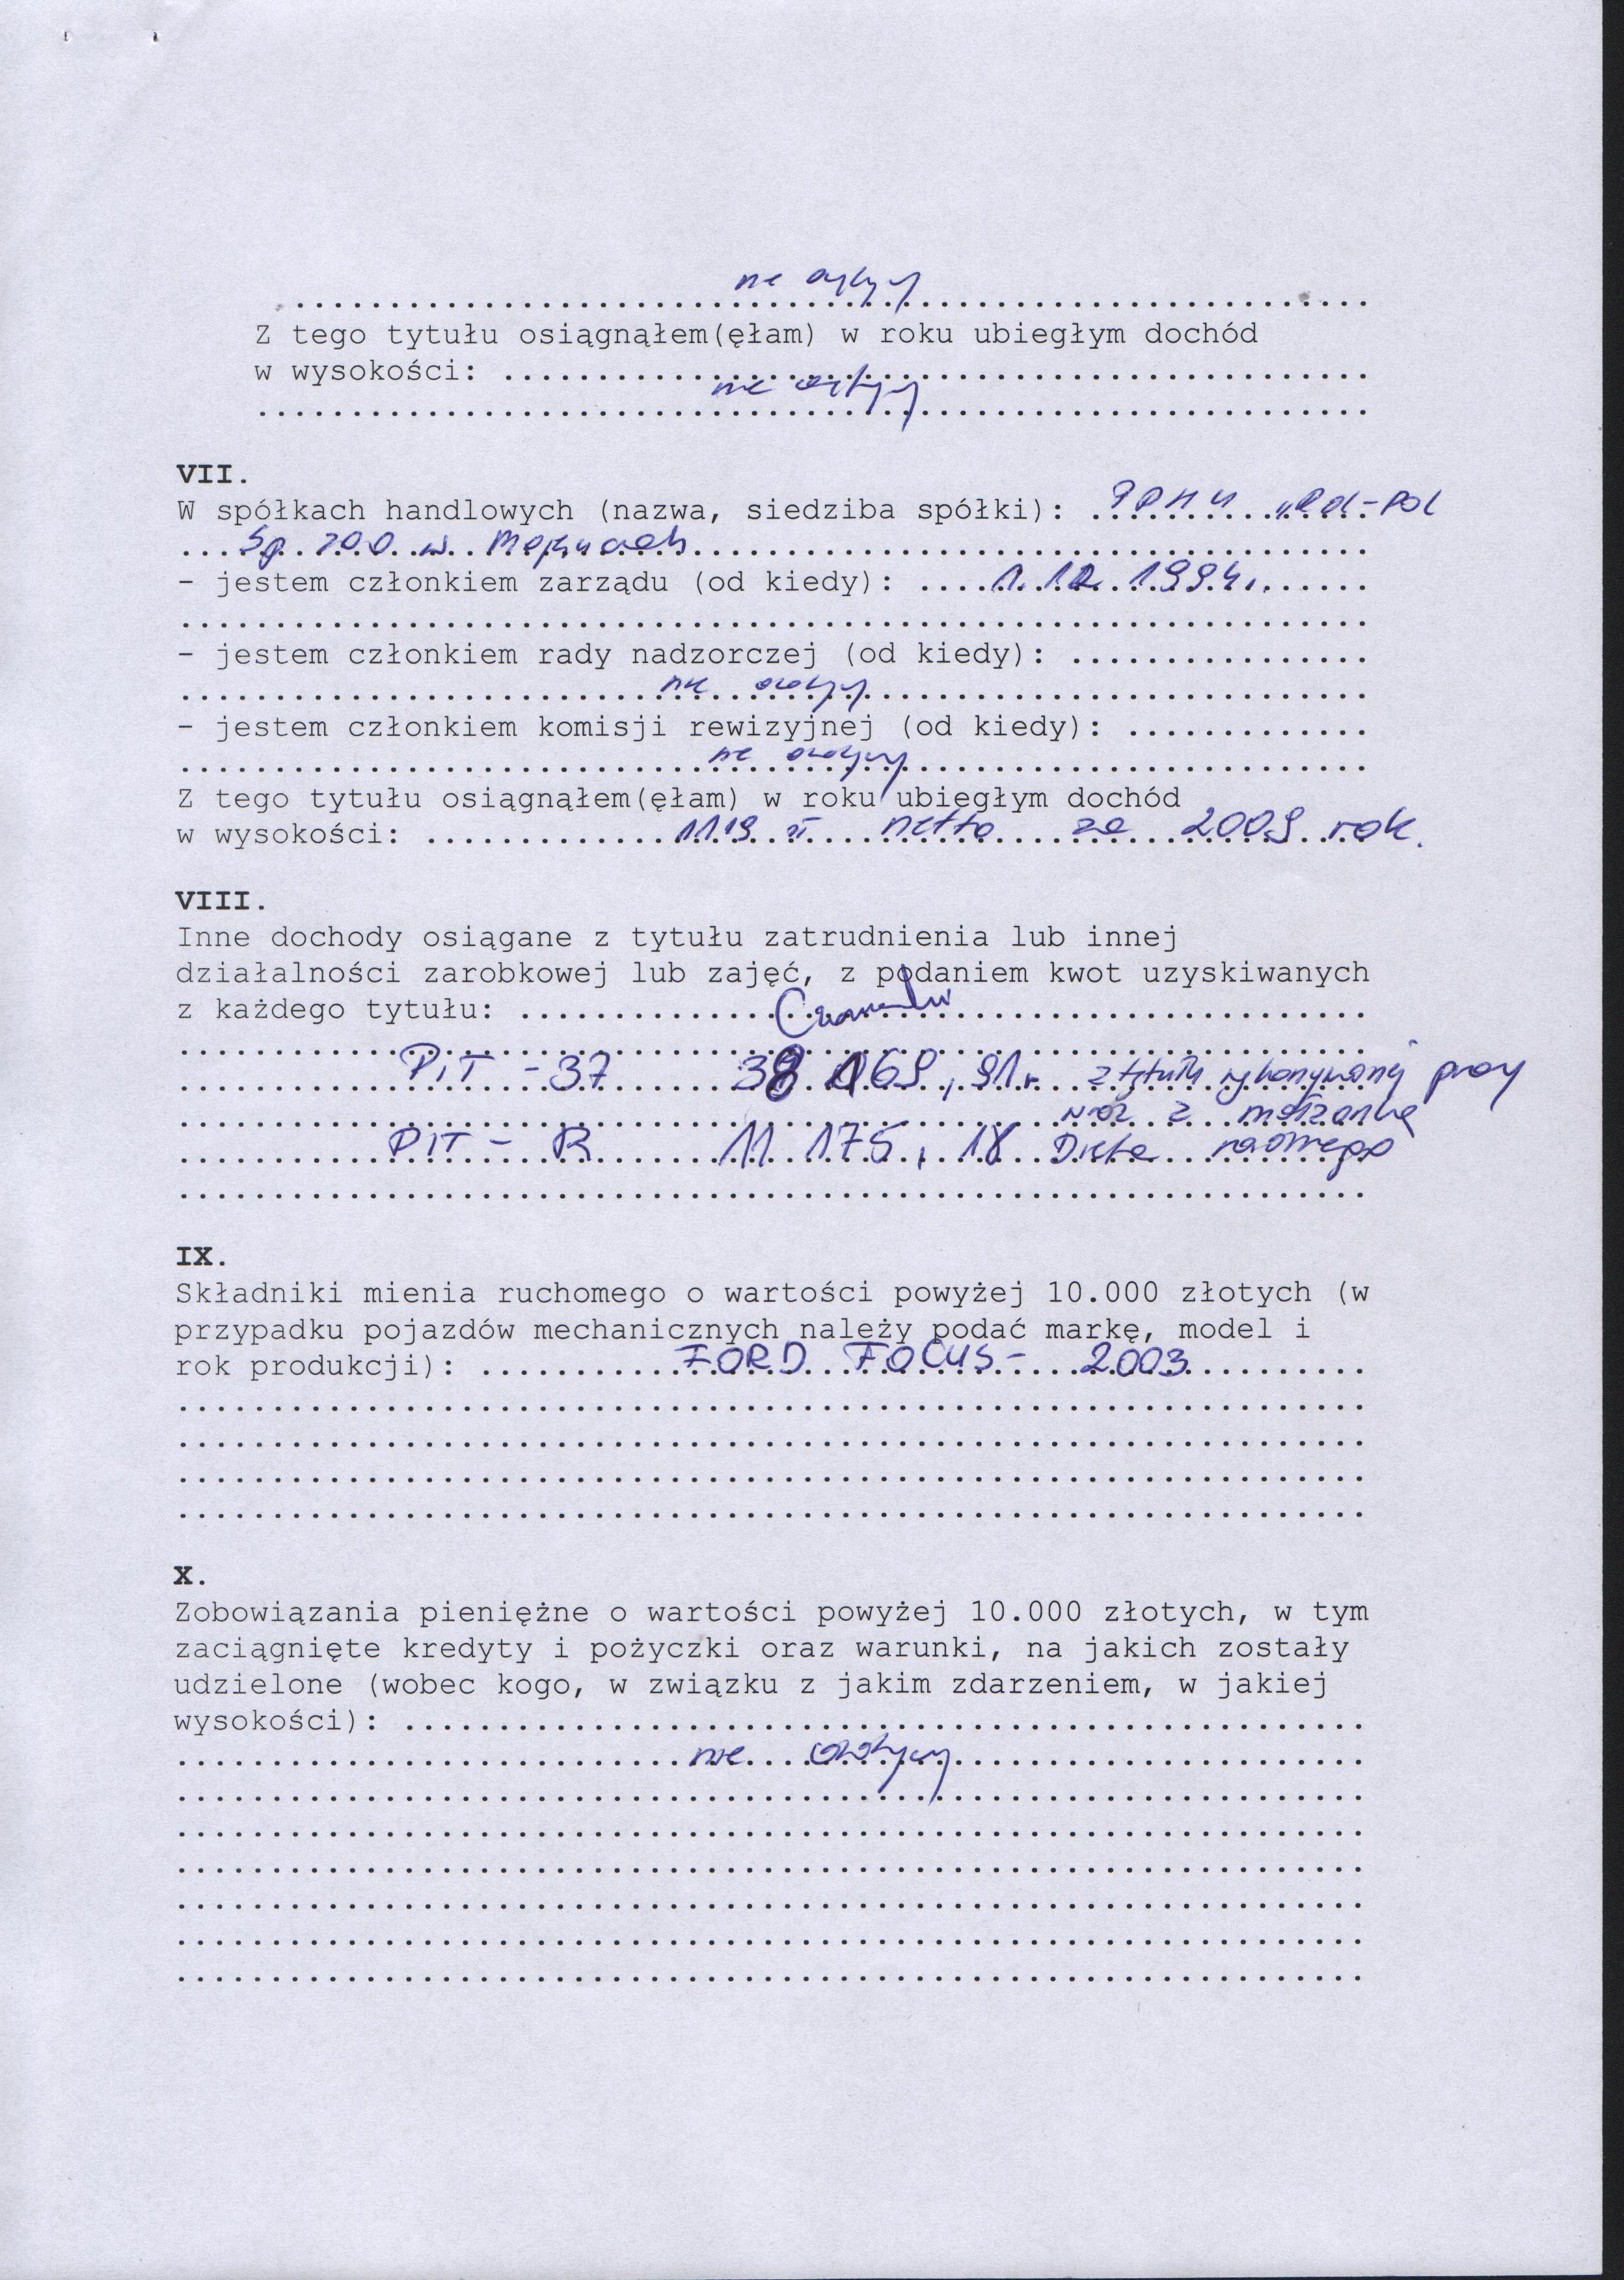 nie dotyczy
Z tego tytułu osiągnąłem(ęłam) w roku ubiegłym dochód
w wysokości: ....................
nie dotyczy
VII.
W spółkach handlowych (nazwa, siedziba spółki): PPHU „Rol-Pol
Sp. z o.o. w
- jestem członkiem zarządu (od kiedy): 1.12.1994r.
- jestem członkiem rady nadzorczej (od kiedy): ................
nie dotyczy
- jestem członkiem komisji rewizyjnej (od kiedy): .............
nie dotyczy
Z tego tytułu osiągnąłem(ęłam) w roku ubiegłym dochód
w wysokości: 1119 zł netto za 2009 rok.
VIII.
Inne dochody osiągane z tytułu zatrudnienia lub innej
działalności zarobkowej lub zajęć, z podaniem kwot uzyskiwanych
z każdego tytułu: ....................
PIT - 37 38 169,91 z tytułu wykonywanej pracy
wraz z małżonką
PIT - R 11 175,18 Dieta radnego
IX.
Składniki mienia ruchomego o wartości powyżej 10.000 złotych (w
przypadku pojazdów mechanicznych należy podać markę, model i
rok produkcji): FORD FOCUS - 2003
X.
Zobowiązania pieniężne o wartości powyżej 10.000 złotych, w tym
zaciągnięte kredyty i pożyczki oraz warunki, na jakich zostały
udzielone (wobec kogo, w związku z jakim zdarzeniem, w jakiej
wysokości): ....................
nie dotyczy